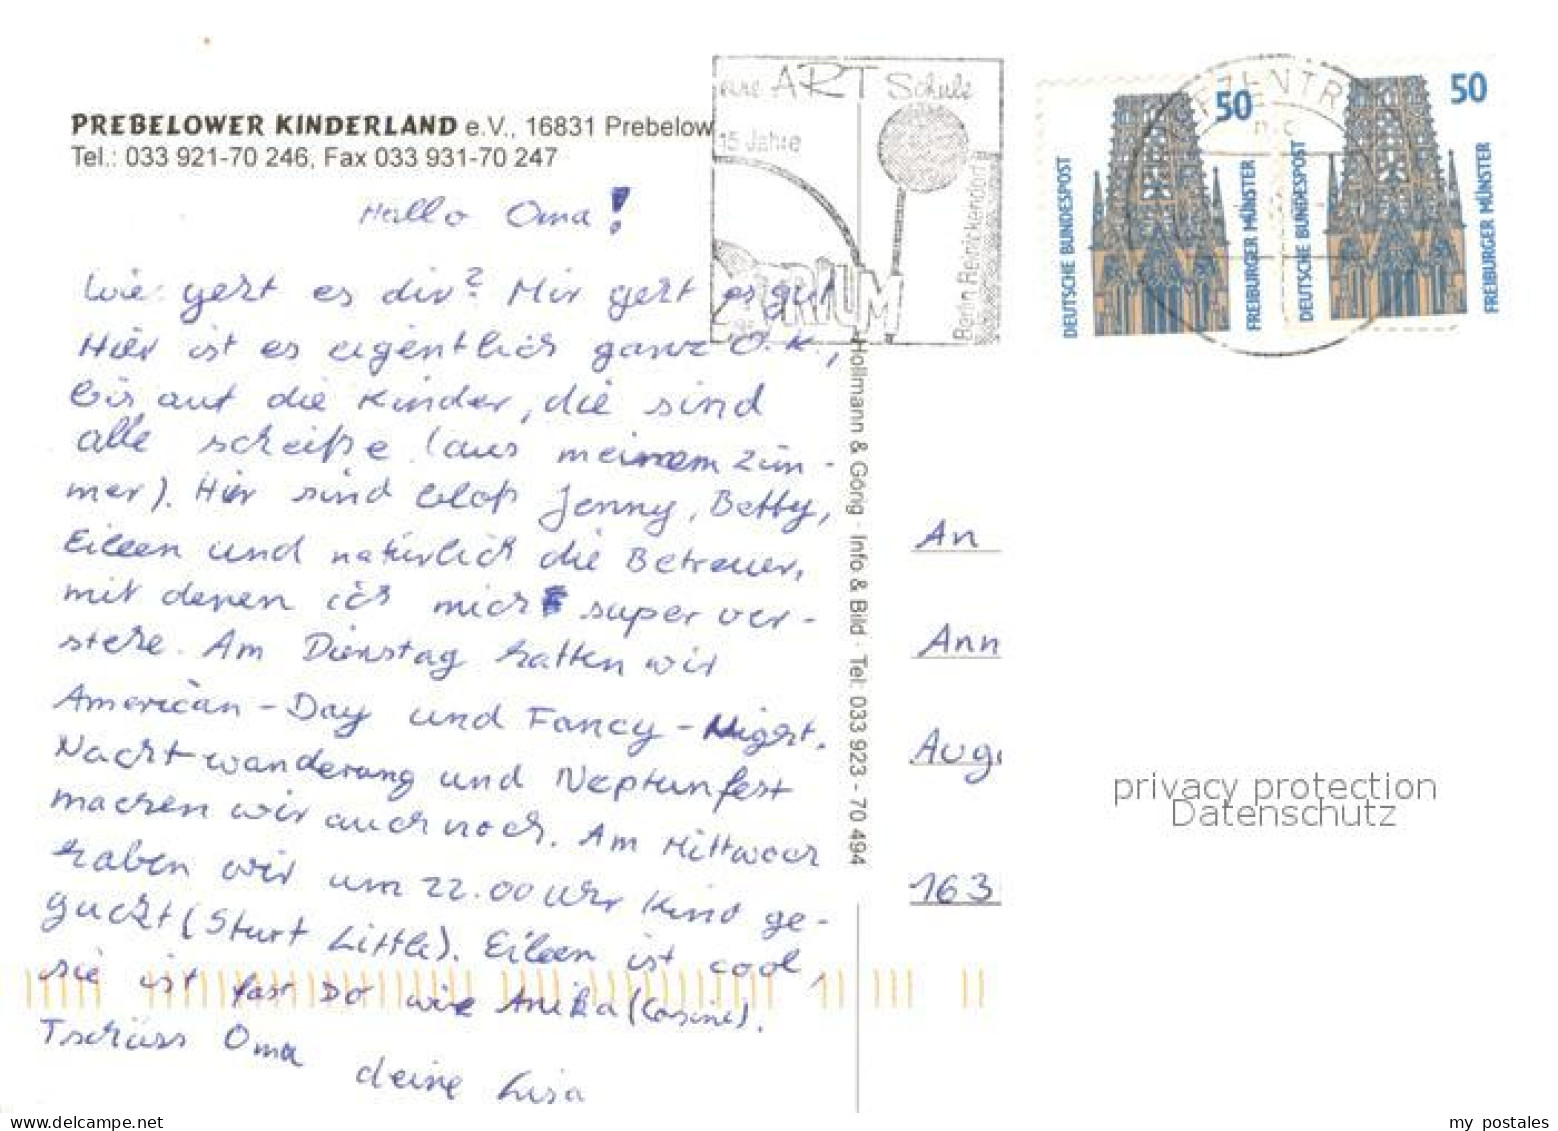 PREBELOWER KINDERLAND e.V., 16831 Prebelow
Tel.: 033 921-70 246, Fax 033 931-70 247
Hallo Oma!
Wie geht es dir? Mir geht es gut
Hier ist es eigentlich ganz O.K.,
bis auf die Kinder, die sind
alle scheiße (aus meinem Zim-
mer). Hier sind bloß Jenny, Betty,
Eileen und natürlich die Betreuer,
mit denen ich mich super ver-
stehe. Am Dienstag hatten wir
American-Day und Fancy-Night.
Nachtwanderung und Neptunfest
machen wir auch noch. Am Mittwoch
haben wir um 22.00 Uhr Kino ge-
guckt (Sturt Little). Eileen ist cool,
sie ist fast so wie Anika (Cosine).
Tschüss Oma
deine Lisa
Hollmann & Görig · Info & Bild · Tel: 033 923 - 70 494
ART Schule
15 Jahre
Berlin Reinickendorf
50
DEUTSCHE BUNDESPOST
FREIBURGER MÜNSTER
50
DEUTSCHE BUNDESPOST
FREIBURGER MÜNSTER
An
Ann
Auge
163
privacy protection
Datenschutz
www.delcampe.net
my postales